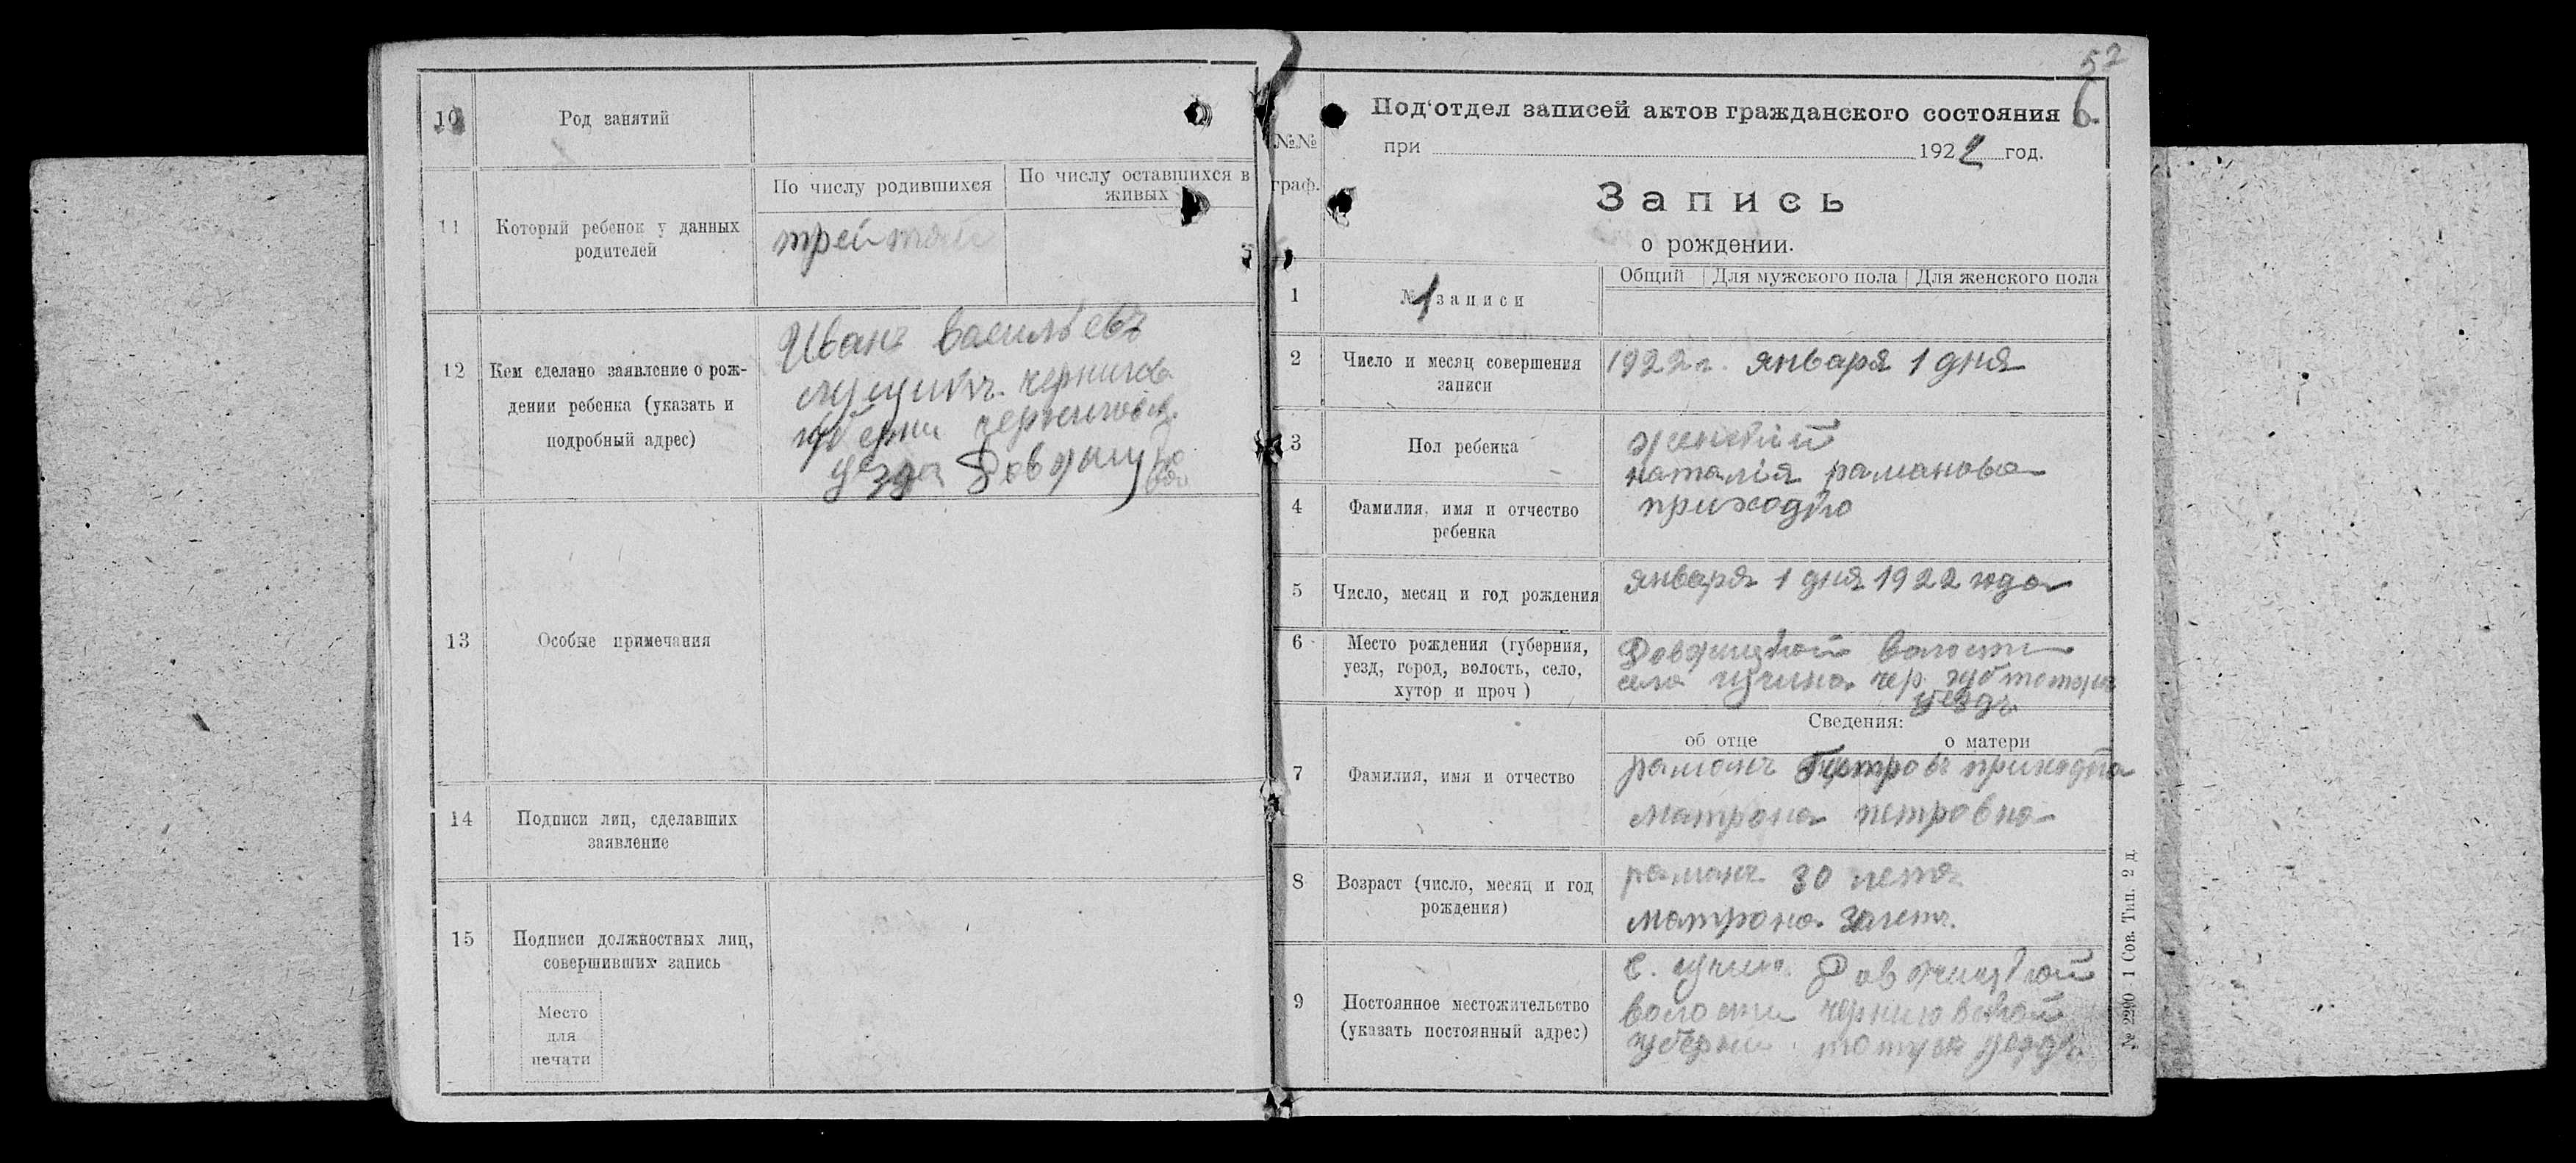 10 Род занятий
11 Который ребенок у данных
родителей
По числу родившихся
По числу оставшихся в
живых
12 Кем сделано заявление о рож-
дении ребенка (указать и
подробный адрес)
Иванъ Васильевъ
чернигов
губерни черниговск.
уезда
13 Особые примечания
14 Подписи лиц, сделавших
заявление
15 Подписи должностных лиц,
совершивших запись
Место
для
печати
52
6.
Под'отдел записей актов гражданского состояния
при 1922 год.
Запись
о рождении.
№№
граф.
1 № 1 записи
Общий Для мужского пола Для женского пола
2 Число и месяц совершения
записи
1922 г. января 1 дня
3 Пол ребенка
женский
4 Фамилия, имя и отчество
ребенка
наталiя раманова
приходко
5 Число, месяц и год рождения
января 1 дня 1922 года
6 Место рождения (губерния,
уезд, город, волость, село,
хутор и проч)
Довжицкой волости
села чер. губ
уездъ
Сведения:
об отце о матери
7 Фамилия, имя и отчество
раманъ приходка
матрона петровна
8 Возраст (число, месяц и год
рождения)
раманъ 30 летъ
матрона
9 Постоянное местожительство
(указать постоянный адрес)
с. Довжицкой
волости черниговской
губерни уездъ
№ 2290 1 Сов. Тип. 2 д.